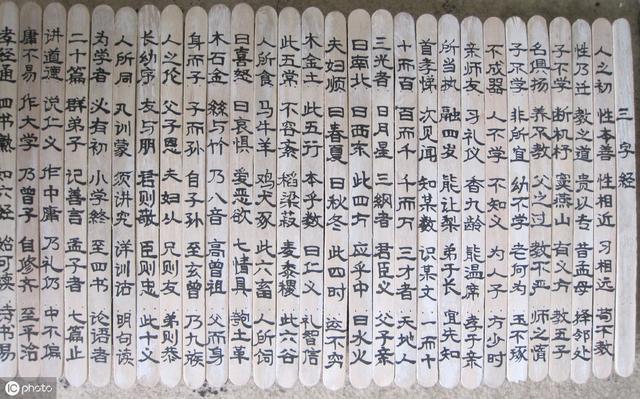 三字经
人之初 性本善 性相近 习相远 苟不教
性乃迁 教之道 贵以专 昔孟母 择邻处
子不学 断机杼 窦燕山 有义方 教五子
名俱扬 养不教 父之过 教不严 师之惰
子不学 非所宜 幼不学 老何为 玉不琢
不成器 人不学 不知义 为人子 方少时
亲师友 习礼仪 香九龄 能温席 孝于亲
所当执 融四岁 能让梨 弟于长 宜先知
首孝悌 次见闻 知某数 识某文 一而十
十而百 百而千 千而万 三才者 天地人
三光者 日月星 三纲者 君臣义 父子亲
曰南北 曰西东 此四方 应乎中 曰水火
夫妇顺 曰春夏 曰秋冬 此四时 运不穷
木金土 此五行 本乎数 曰仁义 礼智信
此五常 不容紊 稻粱菽 麦黍稷 此六谷
人所食 马牛羊 鸡犬豕 此六畜 人所饲
曰喜怒 曰哀惧 爱恶欲 七情具 匏土革
木石金 絲与竹 乃八音 高曾祖 父而身
身而子 子而孙 自子孙 至玄曾 乃九族
人之伦 父子恩 夫妇从 兄则友 弟则恭
长幼序 友与朋 君则敬 臣则忠 此十义
人所同 凡训蒙 须讲究 详训诂 明句读
为学者 必有初 小学终 至四书 论语者
二十篇 群弟子 记善言 孟子者 七篇止
讲道德 说仁义 作中庸 乃礼仍 中不偏
庸不易 作大学 乃曾子 自修齐 至平治
孝经通 四书熟 如六经 始可读 诗书易
iC photo